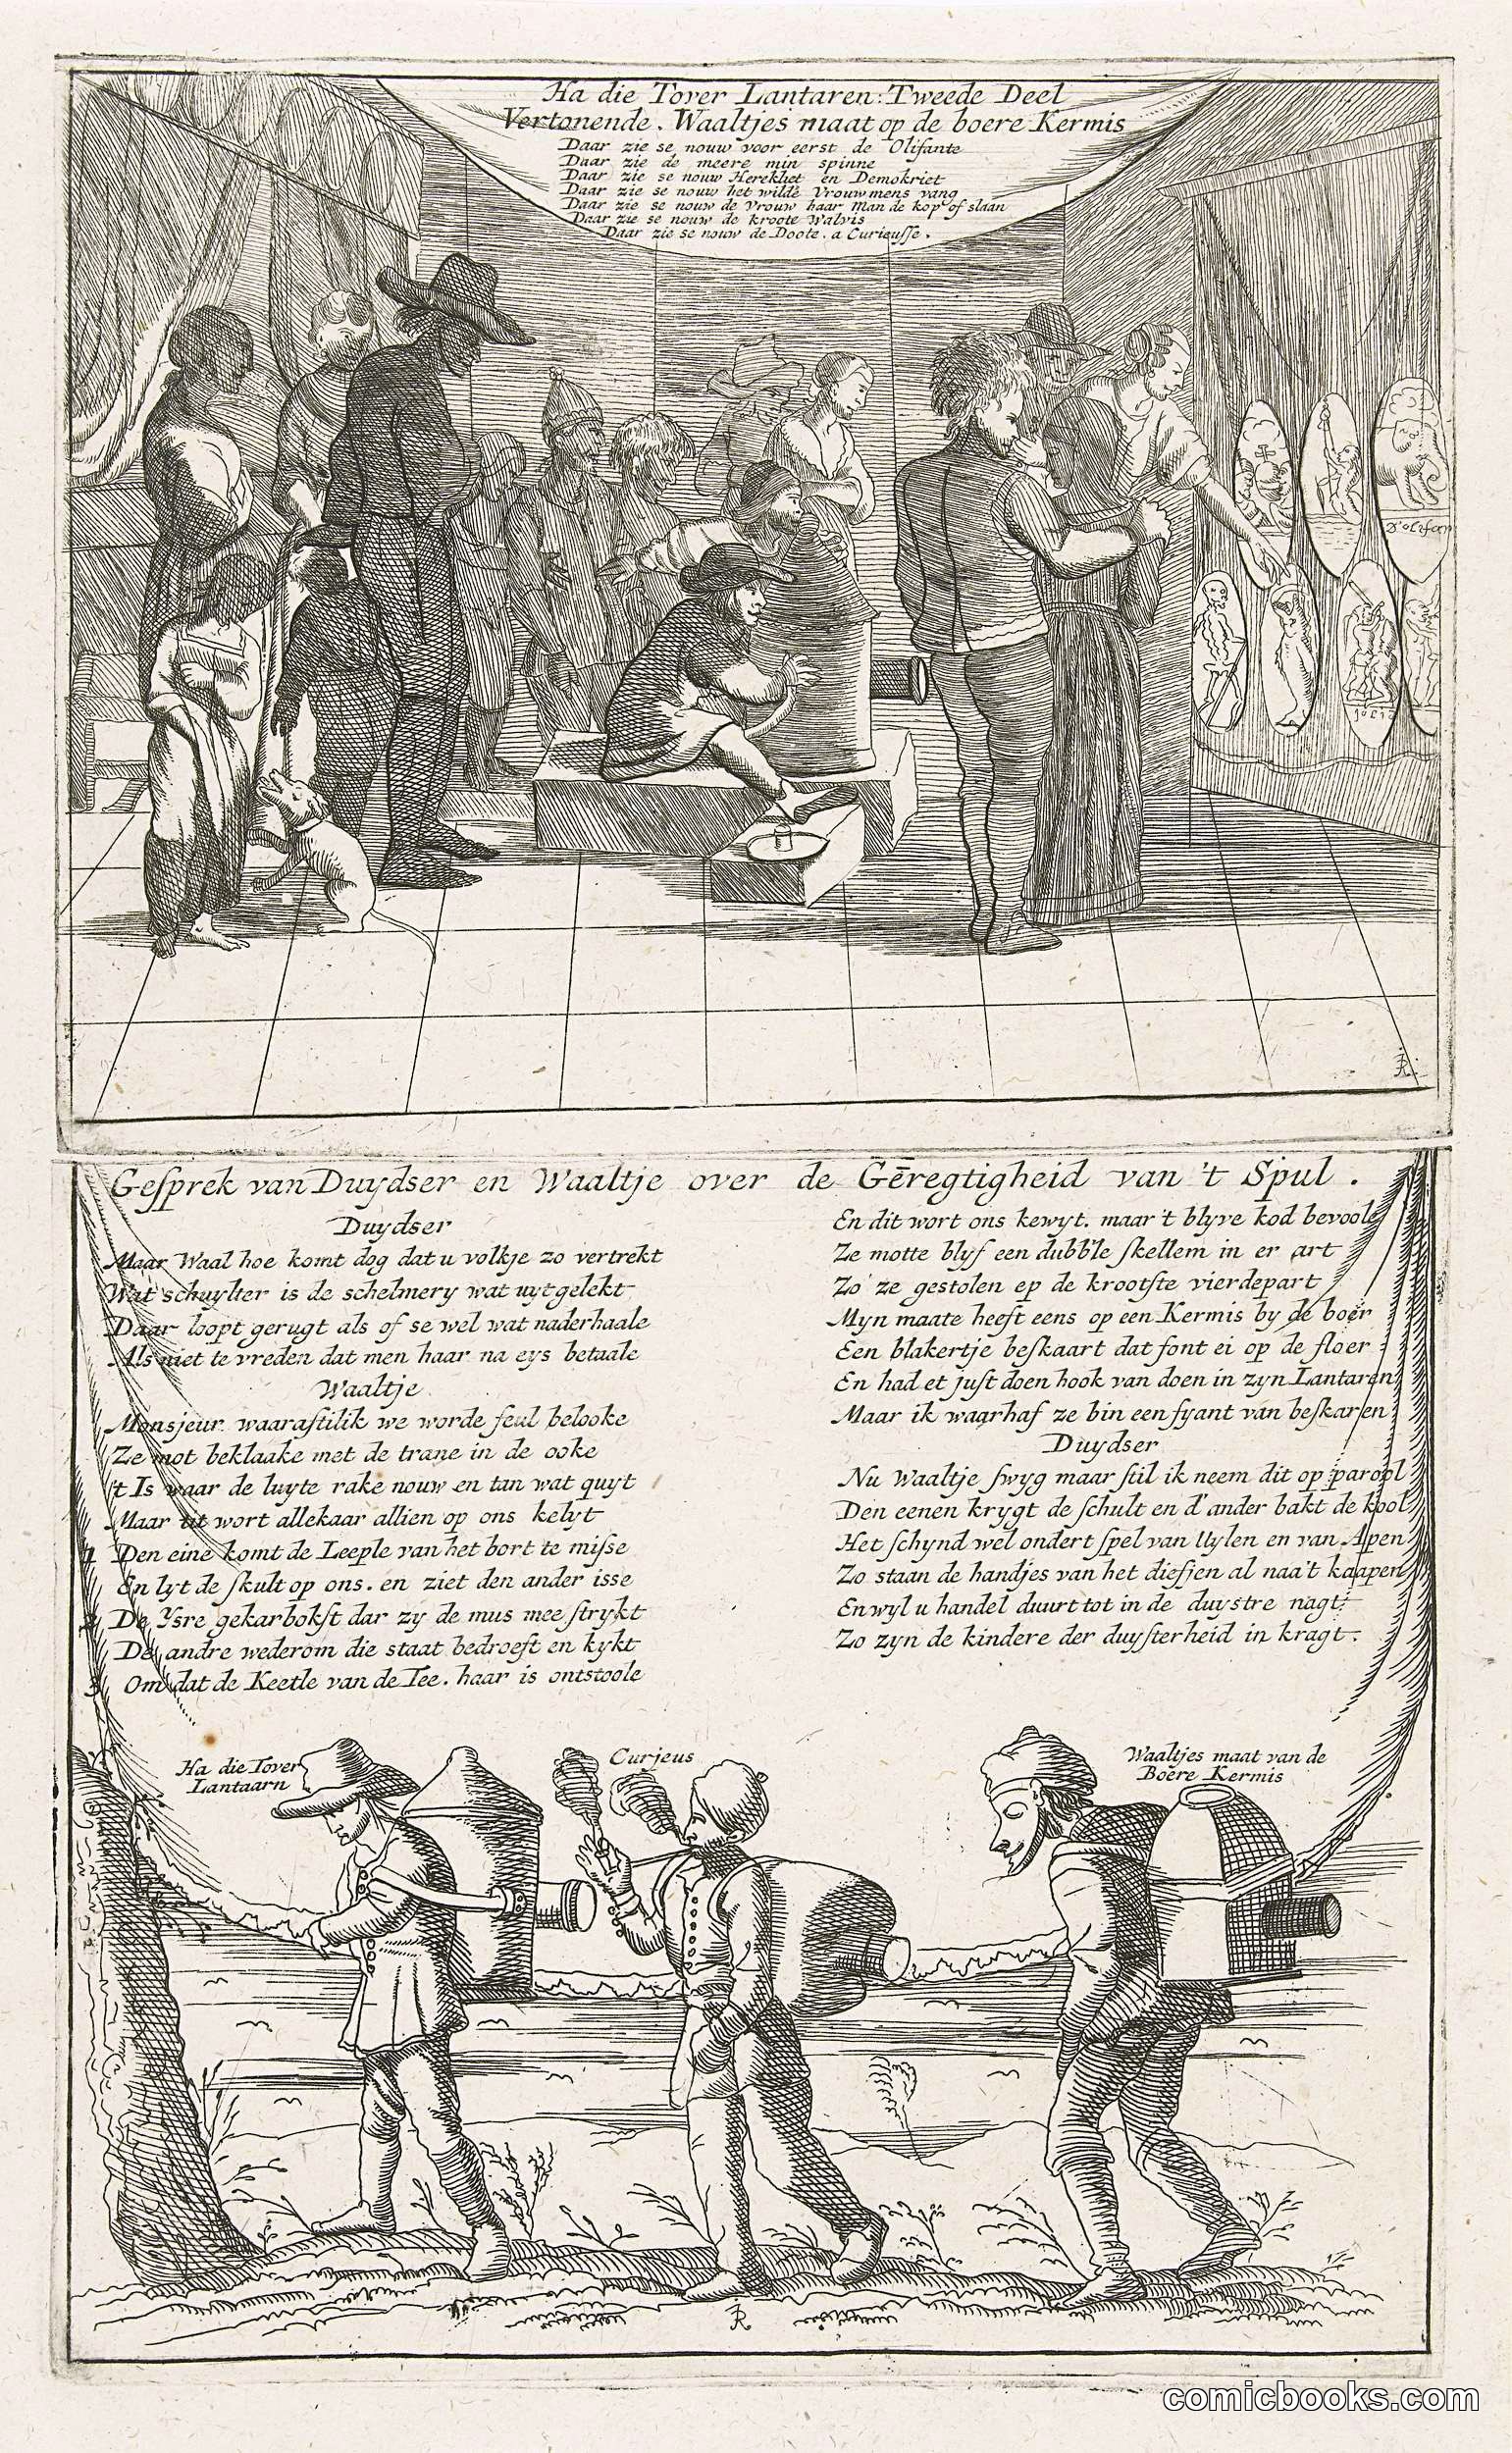 Ha die Tover Lantaren: Tweede Deel
Vertonende. Waaltjes maat op de boere Kermis
Daar zie se nouw voor eerst de Olifante
Daar zie de meere min spinne
Daar zie se nouw Herekliet en Demokriet
Daar zie se nouw het wilde Vrouwmens vang
Daar zie se nouw de Vrouw haar Man de kop of slaan
Daar zie se nouw de kroote Walvis
Daar zie se nouw de Doote. a Curieuſſe.
D'olifan
Geſprek van Duydser en Waaltje over de Gēregtigheid van 't Spul.
Duydser
Maar Waal hoe komt dog dat u volkje zo vertrekt
Wat schuylter is de schelmery wat uytgelekt
Daar loopt gerugt als of se wel wat naderhaale
Als niet te vreden dat men haar na eys betaale
Waaltje
Monsjeur waaraſtilik we worde feul belooke
Ze mot beklaake met de trane in de ooke
't Is waar de luyte rake nouw en tan wat quyt
Maar tit wort allekaar allien op ons kelyt
1 Den eine komt de Leeple van het bort te miſse
En lyt de ſkult op ons. en ziet den ander isse
2 De Ysre gekarbokſt dar zy de mus mee ſtrykt
De andre wederom die staat bedroeft en kykt
3 Om dat de Keetle van de Tee. haar is ontstoole
En dit wort ons kewyt. maar 't blyve kod bevoole
Ze motte blyf een dubb'le ſkellem in er art
Zo ze gestolen ep de krootſte vierdepart
Myn maate heeft eens op een Kermis by de boer
Een blakertje beſkaart dat font ei op de floer
En had et juſt doen hook van doen in zyn Lantaren
Maar ik waarhaf ze bin een fyant van beſkaren
Duydser
Nu Waaltje ſwyg maar ſtil ik neem dit op parool
Den eenen krygt de ſchult en d'ander bakt de kool
Het ſchynd wel ondert ſpel van Uylen en van Apen
Zo staan de handjes van het diefjen al naa't kaapen
En wyl u handel duurt tot in de duystre nagt
Zo zyn de kindere der duyſterheid in kragt.
Ha die Tover
Lantaarn
Curjeus
Waaltjes maat van de
Boere Kermis
comicbooks.com